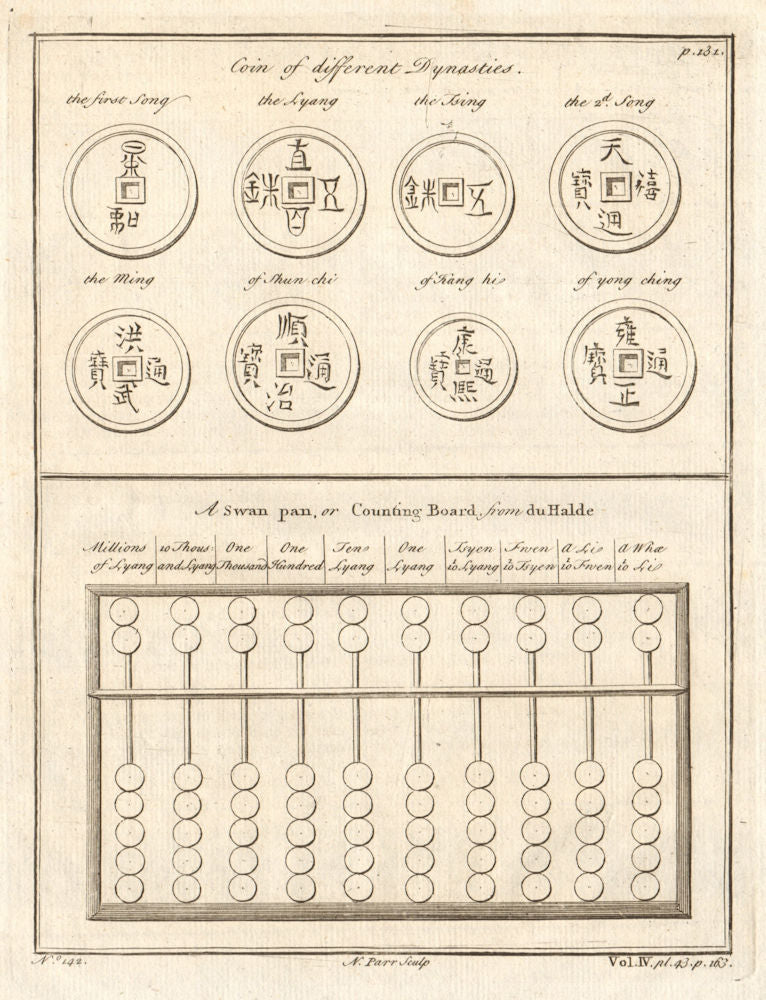 p. 131.
Coin of different Dynasties.
the first Song
the Lyang
the Tsing
the 2d. Song
景和
直百五銖
五銖
天禧通寶
the Ming
of Shun chi
of Kang hi
of yong ching
洪武通寶
順治通寶
康熙通寶
雍正通寶
A Swan pan, or Counting Board, from du Halde
Millions of Lyang
10 Thous: and Lyang
One Thousand
One Hundred
Tens Lyang
One Lyang
Tsyen 10 Lyang
Fwen 10 Tsyen
A Li 10 Fwen
A Whae 10 Li
No. 142.
N. Parr Sculp
Vol. IV. pl. 43. p. 163.